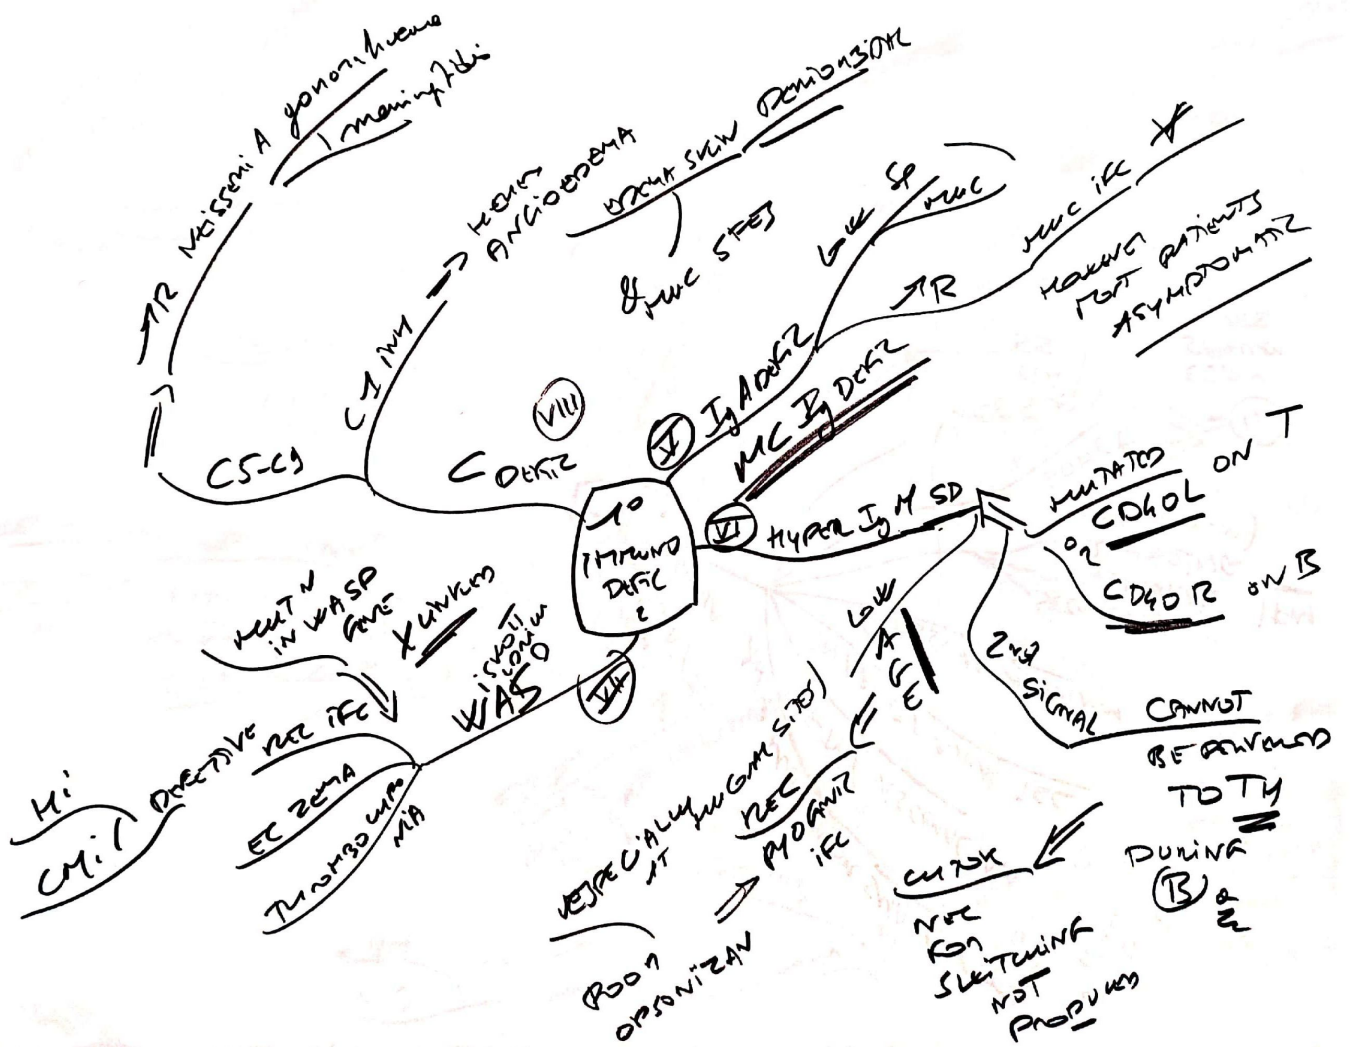 1°
IMMUNO
DEFIC
VIII
C DEFIC
C5-C9
↑R NEISSERIA gonorrhoeae
meningitidis
C1 INH
ANGIOEDEMA
EDEMA SKIN
& MUC SFES
V
IgA DEFIC
LOW SP
MUC
↑R
MUC IFC
HOWEVER
MOST PATIENTS
ASYMPTOMATIC
MC Ig DEFIC
VI
HYPER IgM SD
MUTATED
CD40L ON T
OR
CD40R ON B
2nd
SIGNAL
CANNOT
BE DELIVERED
TO TH
DURING
B
CYTOK
NEC
FOR
SWITCHING
NOT
PRODUCED
LOW
A
G
E
REC
PYOGENIC
IFC
ESPECIALLY
AT
MUCOSAL SITES
POOR
OPSONIZAN
VII
WAS
X LINKED
MUTN
IN WASP
GENE
REC IFC
ECZEMA
THROMBOCYTOPE
NIA
DEFECTIVE
HI
CMI